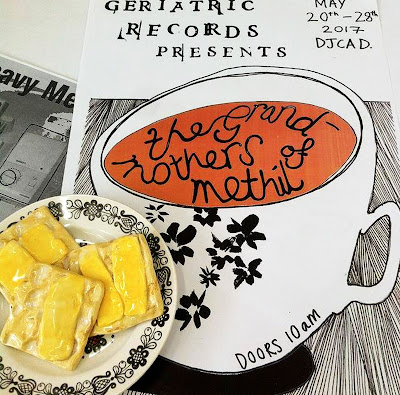 GERIATRIC
RECORDS
PRESENTS
MAY
20th - 28th
2017
DJCAD.
the Grand-
mothers of
methil
DOORS 10am